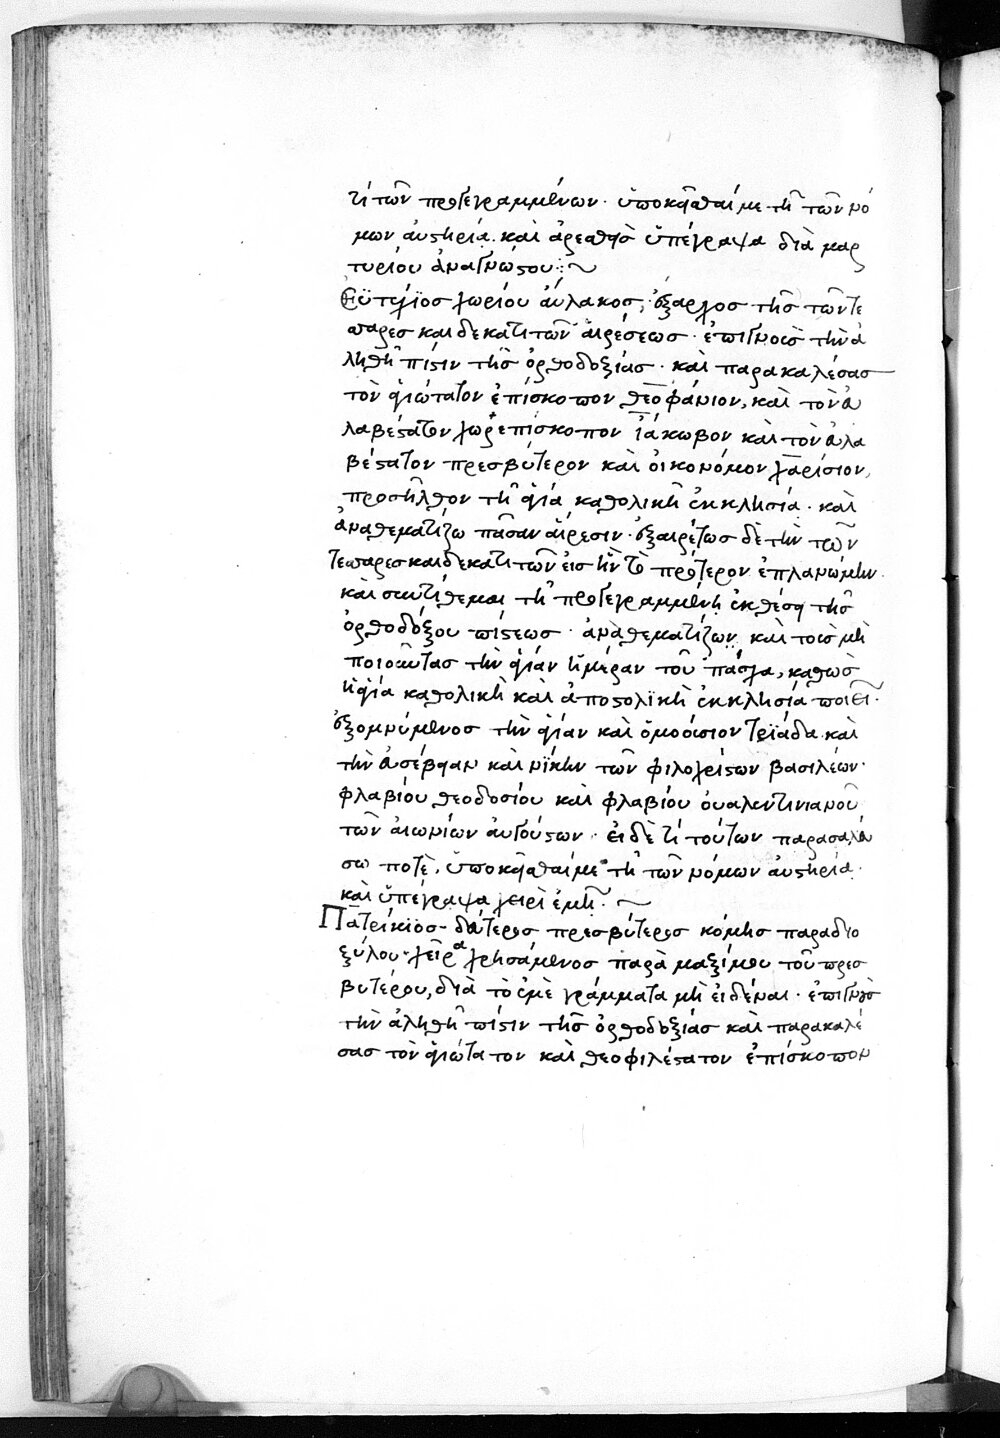 τί τῶν προγεγραμμένων. ὑποκεῖσθαί με τῇ τῶν νό
μων αὐστηρία. καὶ ἀρεσθεὶς ὑπέγραψα διὰ μαρ
τυρίου ἀναγνώστου:~
Εὐτύχιος χωρίου αὔλακος, ἔξαρχος τῆς τῶν τε
σσαρεσκαιδεκατιτῶν αἱρέσεως. ἐπιγνοὺς τὴν ἀ
ληθῆ πίστιν τῆς ὀρθοδοξίας. καὶ παρακαλέσας
τὸν ἁγιώτατον ἐπίσκοπον θεοφάνιον, καὶ τὸν εὐ
λαβέστατον χωρεπίσκοπον ἰάκωβον καὶ τὸν εὐλα
βέστατον πρεσβύτερον καὶ οἰκονόμον χαρίσιον,
προσῆλθον τῇ ἁγία καθολικῇ ἐκκλησία. καὶ
ἀναθεματίζω πᾶσαν αἵρεσιν. ἐξαιρέτως δὲ τὴν τῶν
τεσσαρεσκαιδεκατιτῶν εἰς ἣν τὸ πρότερον ἐπλανώμην.
καὶ συντίθεμαι τῇ προγεγραμμένῃ ἐκθέσει τῆς
ὀρθοδόξου πίστεως. ἀναθεματίζων καὶ τοὺς μὴ
ποιοῦντας τὴν ἁγίαν ἡμέραν τοῦ πάσχα, καθὼς
ἡ ἁγία καθολικὴ καὶ ἀποστολικὴ ἐκκλησία ποιεῖ.
ἐξομνύμενος τὴν ἁγίαν καὶ ὁμοούσιον τριάδα καὶ
τὴν εὐσέβειαν καὶ νίκην τῶν φιλοχρίστων βασιλέων.
φλαβίου θεοδοσίου καὶ φλαβίου οὐαλεντινιανοῦ
τῶν αἰωνίων αὐγούστων. εἰ δὲ τί τούτων παρασαλεύ
σω ποτὲ, ὑποκεῖσθαί με τῇ τῶν νόμων αὐστηρία.
καὶ ὑπέγραψα χειρὶ ἐμῇ. ~
Πατρίκιος δεύτερος πρεσβύτερος κώμης παραδιο
ξύλου. χειρὶ χρησάμενος παρὰ μαξίμου τοῦ πρεσ
βυτέρου, διὰ τὸ ἐμὲ γράμματα μὴ εἰδέναι. ἐπιγνοὺς
τὴν ἀληθῆ πίστιν τῆς ὀρθοδοξίας καὶ παρακαλέ
σας τὸν ἁγιώτατον καὶ θεοφιλέστατον ἐπίσκοπον